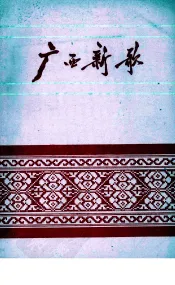 广西新歌